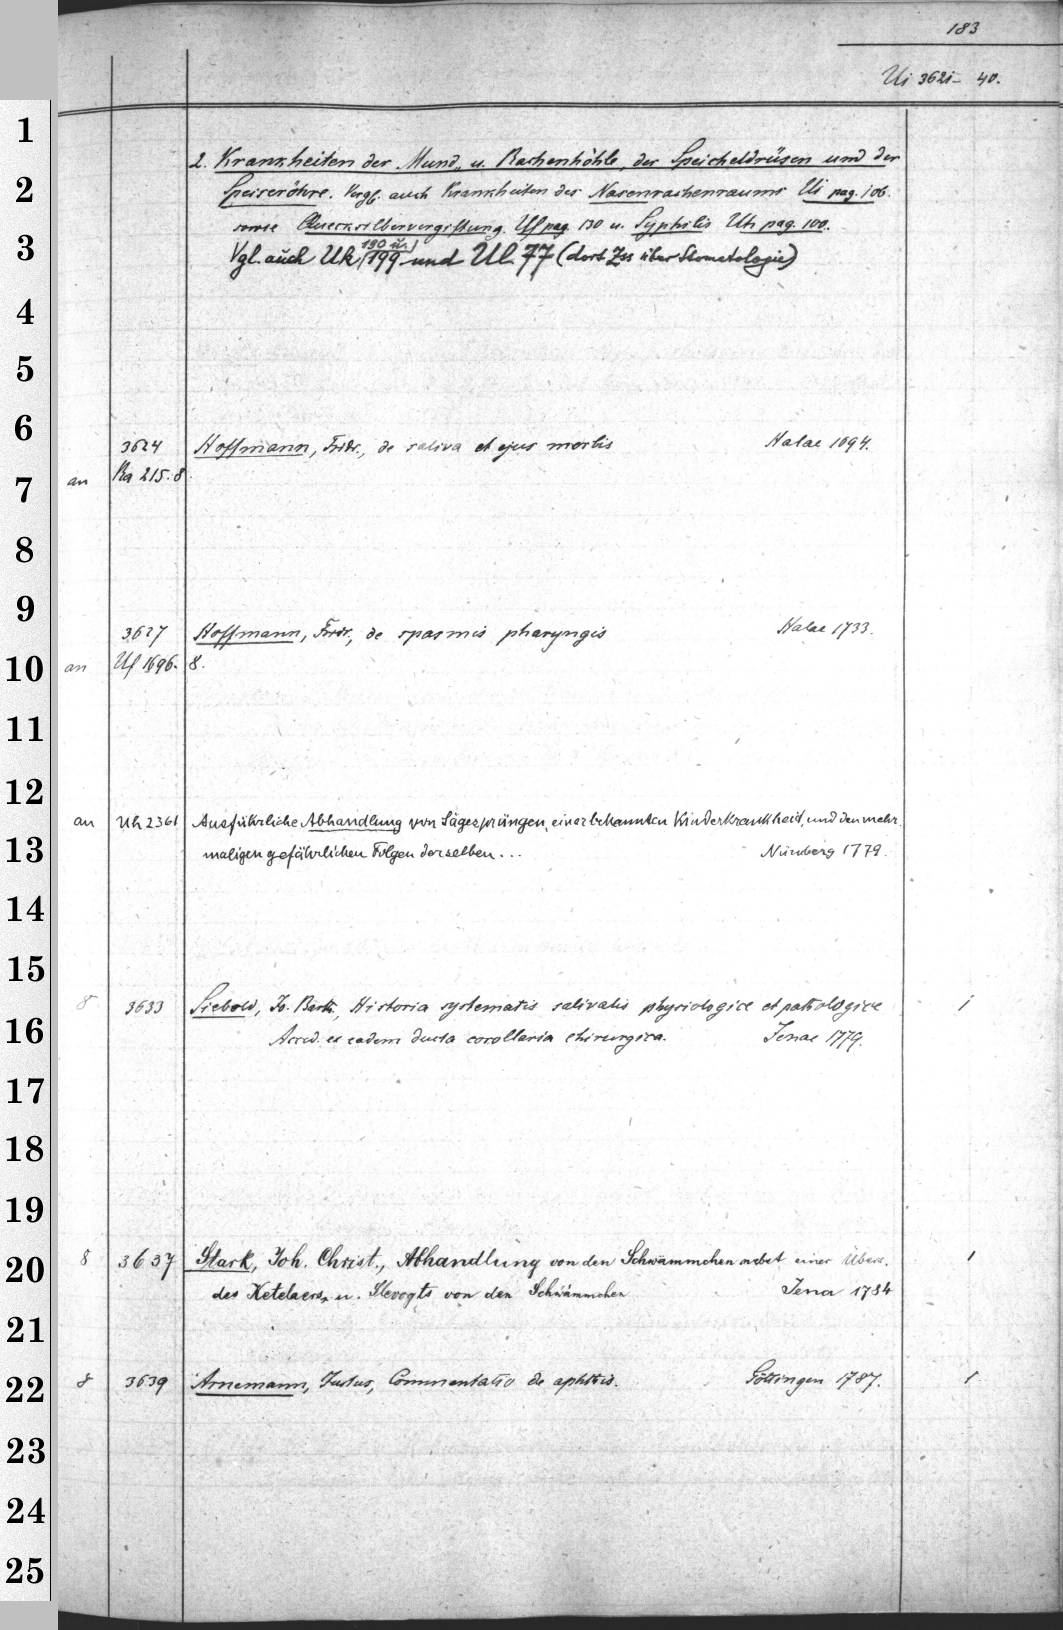 183
Ui 3621- 40.
2. Krankheiten der Mund- u. Rachenhöhle, der Speicheldrüsen und der
Speiseröhre. Vergl. auch Krankheiten des Nasenrachenraums Ui pag. 106.
sowie Quecksilbervergiftung. Uf pag. 130 u. Syphilis Uh pag. 100.
190 u.
Vgl. auch Uk 199 und Ul 77 (dort Zss über Stomatologie)
3624 Hoffmann, Fridr., de saliva et ejus morbis Halae 1694.
an Ra 215. 8.
3627 Hoffmann, Fridr., de spasmis pharyngis Halae 1733.
an Uf 1696. 8.
an Uh 2361 Ausführliche Abhandlung von Sägesprüngen, einer bekannten Kinderkrankheit, und den mehr
maligen gefährlichen Folgen derselben... Nürnberg 1779.
8 3633 Siebold, Jo. Barth., Historia systematis salivalis physiologice et pathologice
Acced. ex eadem ducta corollaria chirurgica. Jenae 1779. 1
8 3637 Stark, Joh. Christ., Abhandlung von den Schwämmchen nebst einer Übers. 1
des Ketelaers u. Slevogts von den Schwämmchen Jena 1784
8 3639 Arnemann, Justus, Commentatio de aphthis. Göttingen 1787. 1
1
2
3
4
5
6
7
8
9
10
11
12
13
14
15
16
17
18
19
20
21
22
23
24
25